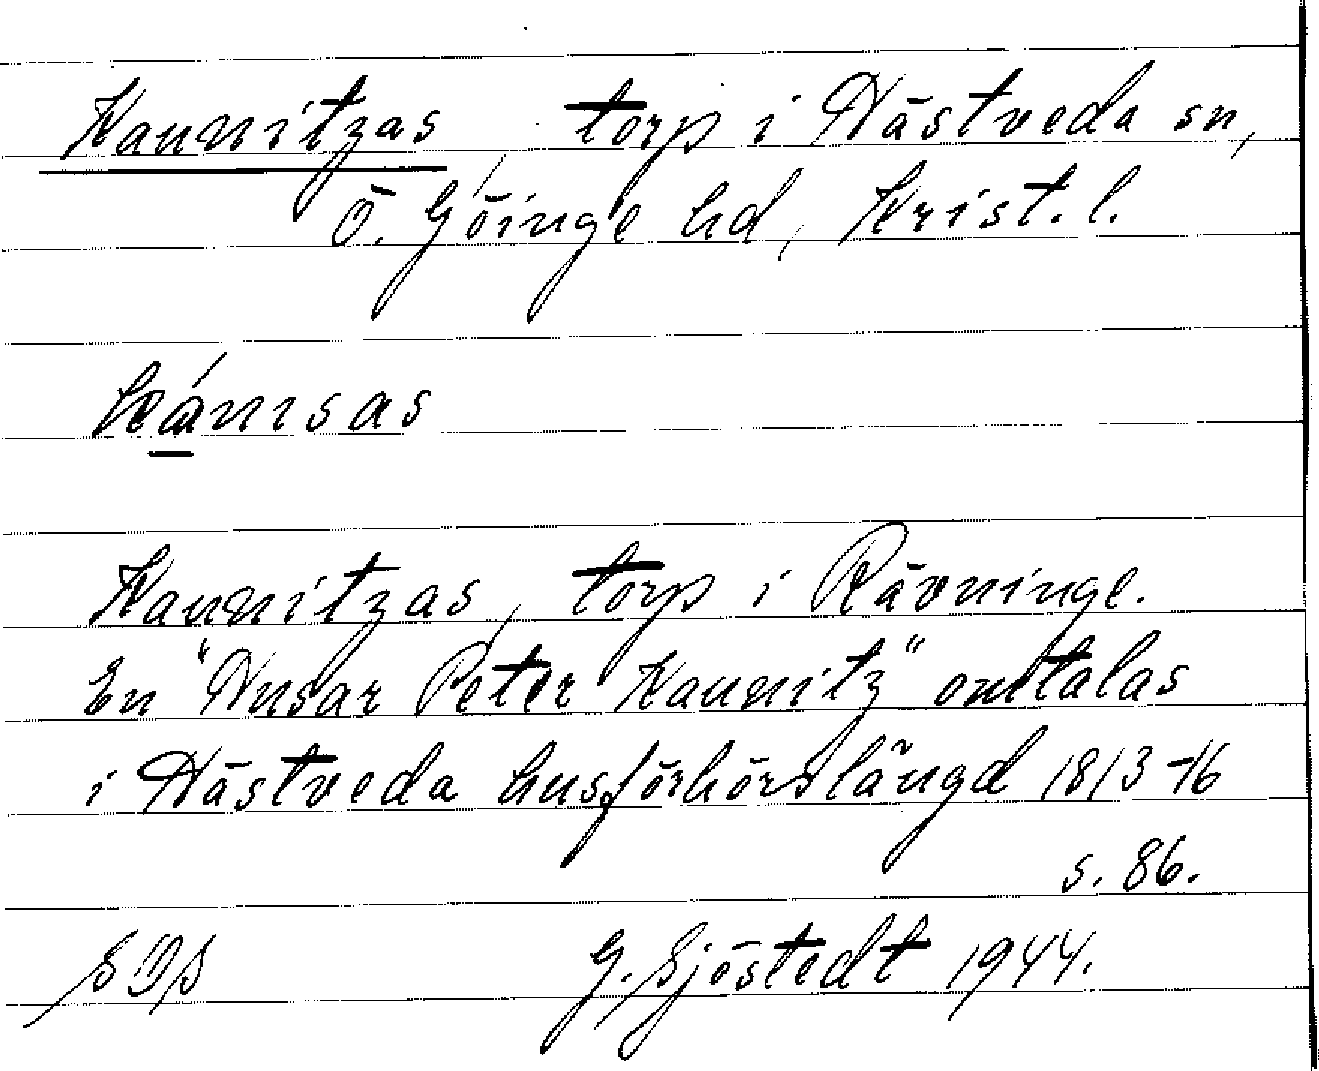 Kaunitzas torp i Hästveda sn,
Ö. Göinge hd, Krist. l.
kánisas
Kaunitzas, torp i Rävninge.
En "Husar Peter Kaunitz" omtalas
i Hästveda husförhörslängd 1813-16
s. 86.
G. Sjöstedt 1944.